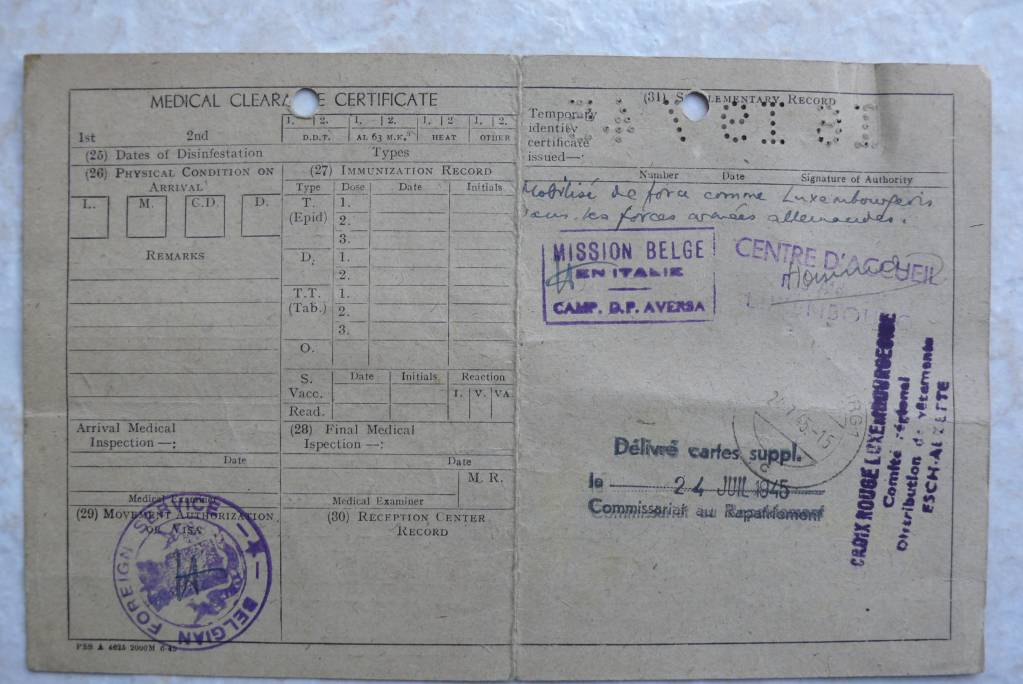 MEDICAL CLEARA CE CERTIFICATE
1st 2nd
1. 2. 1. 2. 1. 2 1. 2.
D.D.T. AL 63 M.K. HEAT OTHER
(25) Dates of Disinfestation Types
(26) Physical Condition on
Arrival
L. M. C.D. D.
Remarks
(27) Immunization Record
Type Dose Date Initials
T. 1.
(Epid) 2.
3.
D. 1.
2.
T.T. 1.
(Tab.) 2.
3.
O.
S. Date Initials Reaction
Vacc. I. V. VA.
Read.
Arrival Medical
Inspection —:
Date
Medical Examiner
(28) Final Medical
Ispection —:
Date
M. R.
Medical Examiner
(29) Movement Authorization
or Visa
BELGIAN FOREIGN SERVICE
(30) Reception Center
Record
PSS A 4625 2000M 6-45
(31) S LEMENTARY RECORD
Temporary
identity
certificate
issued—:
Number Date Signature of Authority
Mobilisé de force comme Luxembourgeois
dans les forces armées allemandes.
MISSION BELGE
EN ITALIE
CAMP. D.P. AVERSA
CENTRE D'ACCUEIL
Délivré cartes suppl.
le 24 JUIL 1945
Commissariat au Rapatriement
CROIX ROUGE LUXEMBOURGEOISE
Comité régional
Distribution de vêtements
ESCH-ALZETTE